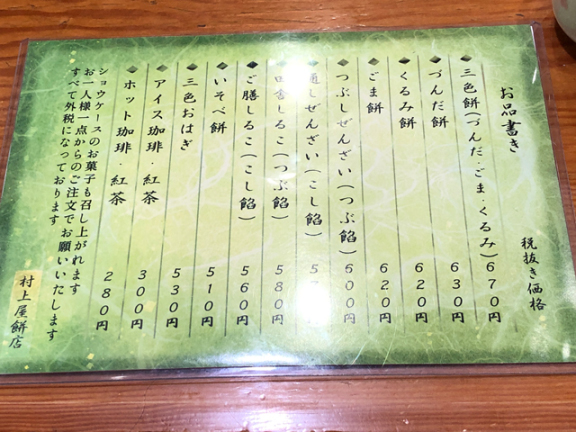 お品書き
税抜き価格
三色餅(づんだ・ごま・くるみ) 670円
づんだ餅 630円
くるみ餅 620円
ごま餅 620円
つぶしぜんざい(つぶ餡) 600円
しぜんざい(こし餡)
しるこ(つぶ餡) 580円
ご膳しるこ(こし餡) 560円
いそべ餅 510円
三色おはぎ 530円
アイス珈琲・紅茶 300円
ホット珈琲・紅茶 280円
ショウケースのお菓子も召し上がれます
お一人様一点からのご注文でお願いいたします
すべて外税になっております
村上屋餅店